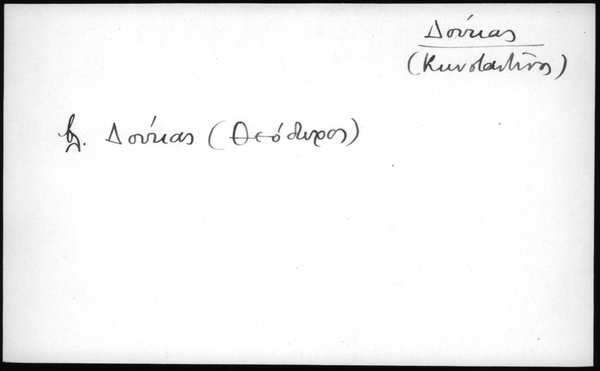 Δούκας
(Κωνσταντῖνος)
βλ. Δούκας (Θεόδωρος)